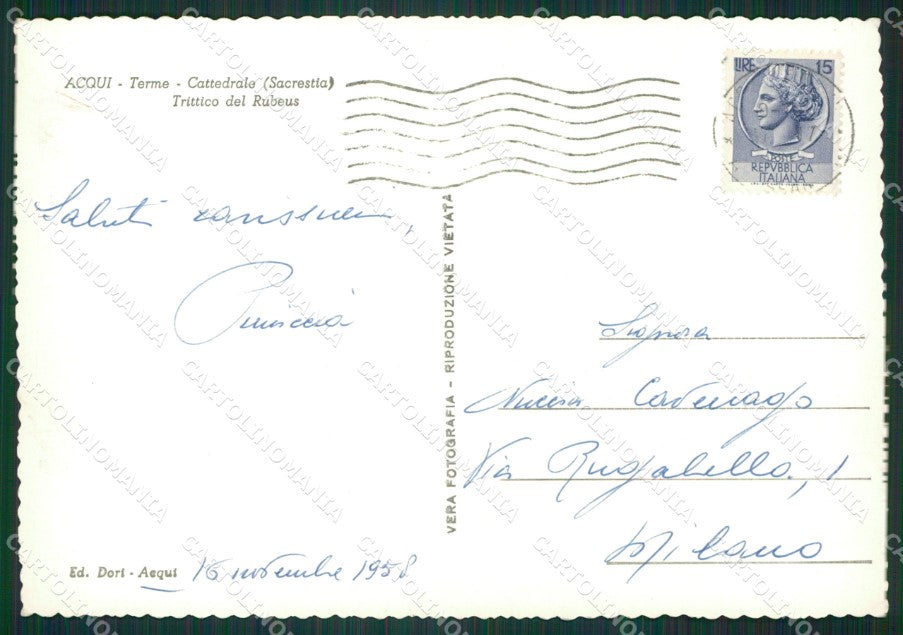 ACQUI - Terme - Cattedrale (Sacrestia)
Trittico del Rubeus
LIRE 15
POSTE
REPVBBLICA
ITALIANA
Saluti carissimi,
VERA FOTOGRAFIA - RIPRODUZIONE VIETATA
Signora
Nuccia Cavenago
Via Rugabella, 1
Milano
Ed. Dori - Acqui 16 novembre 1958
CARTOLINOMANIA